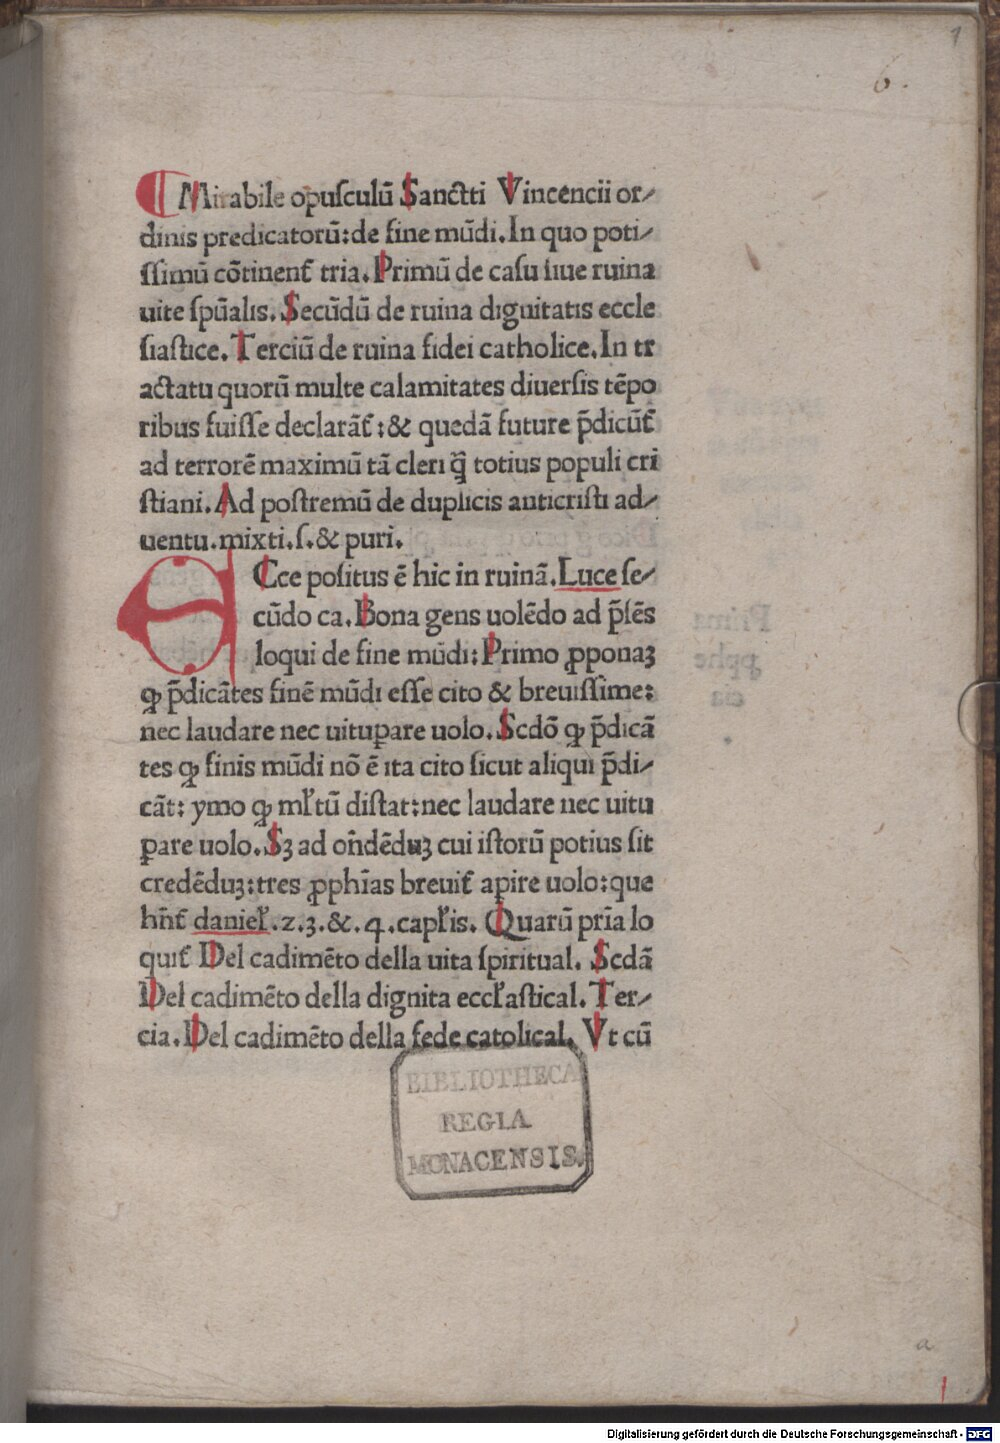 1
6.
¶ Mirabile opuſculū Sanctti Vincencii or⸗
dinis predicatorū: de fine mūdi. In quo poti⸗
ſſimū cōtinenť tria. Primū de caſu ſiue ruina
uite ſpūalis. Secūdū de ruina dignitatis eccle
ſiaſtice. Terciū de ruina fidei catholice. In tr
actatu quorū multe calamitates diuerſis tēpo
ribus fuiſſe declarāť: & quedā future p̄dicūť
ad terrorē maximū tā cleri q̄ȝ totius populi cri
ſtiani. Ad poſtremū de duplicis anticriſti ad⸗
uentu. mixti. ſ. & puri.
ECce poſitus ē hic in ruinā. Luce ſe⸗
cūdo ca. Bona gens uolēdo ad p̄ſēs
loqui de fine mūdi: Primo ꝓponaȝ
ꝙ p̄dicātes finē mūdi eſſe cito & breuiſſime:
nec laudare nec uituꝑare uolo. Scdō ꝙ p̄dicā
tes ꝙ finis mūdi nō ē ita cito ſicut aliqui p̄di⸗
cāt: ymo ꝙ ml̄tū diſtat: nec laudare nec uitu
ꝑare uolo. Sȝ ad on̄dēduȝ cui iſtorū potius ſit
credēduȝ: tres ꝓphīas breuiť apire uolo: que
hn̄ť daniel̄. 2. 3. &. 4. capl̄is. Quarū prīa lo
quiť Del cadimēto della uita ſpiritual. Scdā
Del cadimēto della dignita eccl̄aſtical. Ter⸗
cia. Del cadimēto della fede catolical. Vt cū
BIBLIOTHECA
REGIA
MONACENSIS.
a
Digitalisierung gefördert durch die Deutsche Forschungsgemeinschaft - DFG